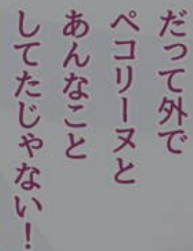 だって外で
ペコリーヌと
あんなこと
してたじゃない！